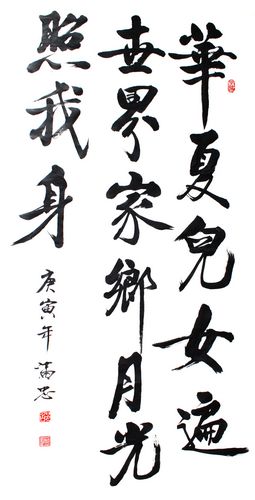 華夏兒女遍
世界家鄉月光
照我身
庚寅年